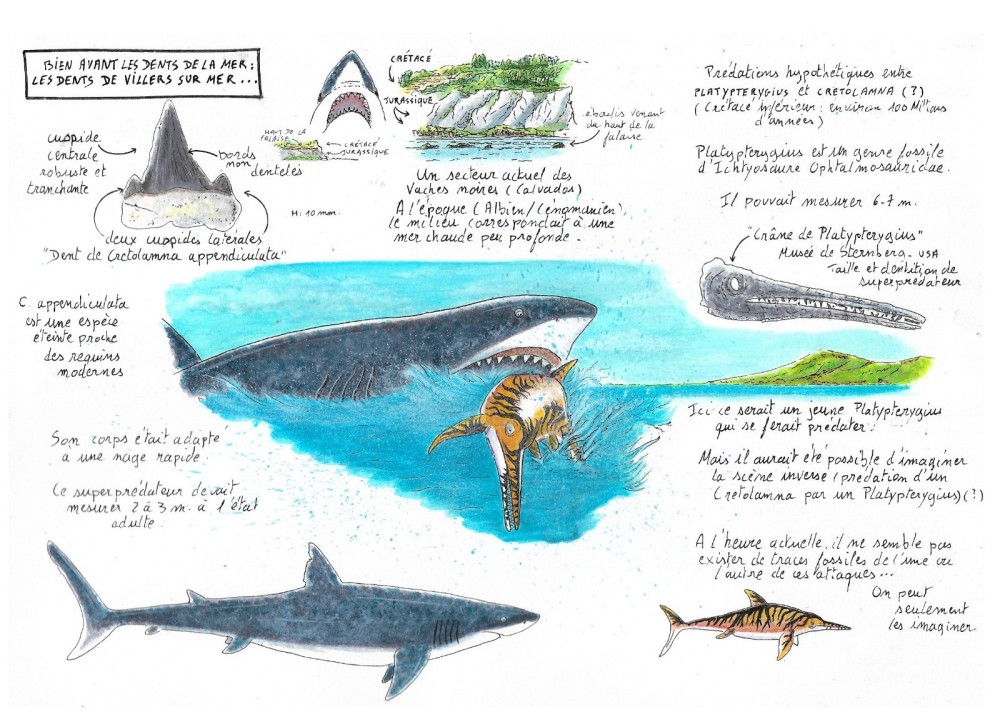 BIEN AVANT LES DENTS DE LA MER :
LES DENTS DE VILLERS SUR MER...
cuspide
centrale
robuste et
tranchante
bords
non
dentelés
H: 10 mm.
deux cuspides latérales
"Dent de Cretolamna appendiculata"
CRÉTACÉ
JURASSIQUE
HAUT DE LA
FALAISE
CRÉTACÉ
JURASSIQUE
éboulis venant
du haut de la
falaise
Un secteur actuel des
Vaches noires (Calvados)
A l'époque (Albien/Cénomanien),
le milieu correspondait à une
mer chaude peu profonde.
Prédations hypothétiques entre
PLATYPTERYGIUS et CRETOLAMNA (?)
(Crétacé inférieur : environ 100 Millions
d'années)
Platypterygius est un genre fossile
d'Ichtyosaure Ophtalmosauridae.
Il pouvait mesurer 6-7 m.
"Crâne de Platypterygius"
Musée de Sternberg - USA
Taille et dentition de
superprédateur
C. appendiculata
est une espèce
éteinte proche
des requins
modernes
Son corps était adapté
a une nage rapide.
Ce superprédateur devait
mesurer 2 à 3 m. à l'état
adulte.
Ici ce serait un jeune Platypterygius
qui se ferait prédater.
Mais il aurait été possible d'imaginer
la scène inverse (prédation d'un
Cretolamna par un Platypterygius) (?)
A l'heure actuelle, il ne semble pas
exister de traces fossiles de l'une ou
l'autre de ces attaques...
On peut
seulement
les imaginer